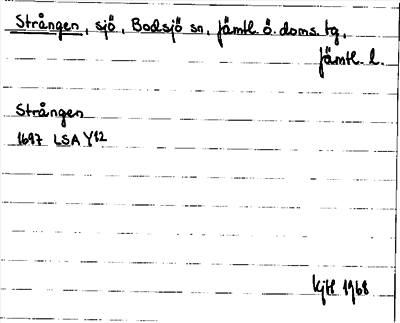 Strången, sjö, Bodsjö sn, Jämtl. ö. doms. tg,
Jämtl. l.
Strången
1697 LSA Y12
KjH 1968